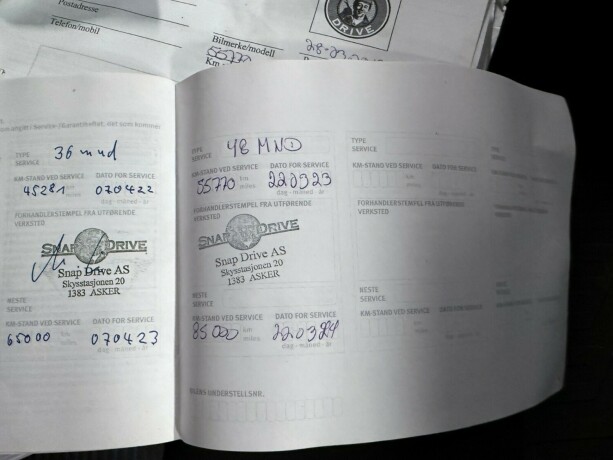 Postadresse
Telefon/mobil
DRIVE
Bilmerke/modell
55770
Km
TYPE
SERVICE
36 mnd
KM-STAND VED SERVICE DATO FOR SERVICE
45281 km 070422
miles dag - måned - år
FORHANDLERSTEMPEL FRA UTFØRENDE
VERKSTED
SNAP DRIVE
Snap Drive AS
Skysstasjonen 20
1383 ASKER
NESTE
SERVICE
KM-STAND VED SERVICE DATO FOR SERVICE
65000 km 070423
miles dag - måned - år
TYPE
SERVICE
48 MND
KM-STAND VED SERVICE DATO FOR SERVICE
55770 km 220923
miles dag - måned - år
FORHANDLERSTEMPEL FRA UTFØRENDE
VERKSTED
SNAP DRIVE
Snap Drive AS
Skysstasjonen 20
1383 ASKER
NESTE
SERVICE
KM-STAND VED SERVICE DATO FOR SERVICE
85000 km 220324
miles dag - måned - år
UNDERSTELLSNR.
TYPE
SERVICE
KM-STAND VED SERVICE DATO FOR SERVICE
km
miles
FORHANDLERSTEMPEL FRA UTFØRENDE
VERKSTED
NESTE
SERVICE
KM-STAND VED SERVICE DATO FOR SERVICE
km
miles